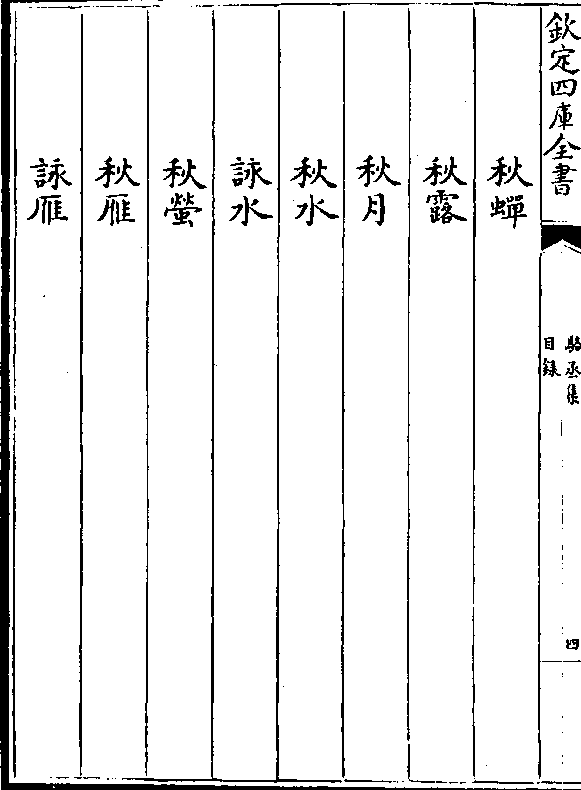 欽定四庫全書
駱丞集
目録
四
秋蟬
秋露
秋月
秋水
詠水
秋螢
秋雁
詠雁